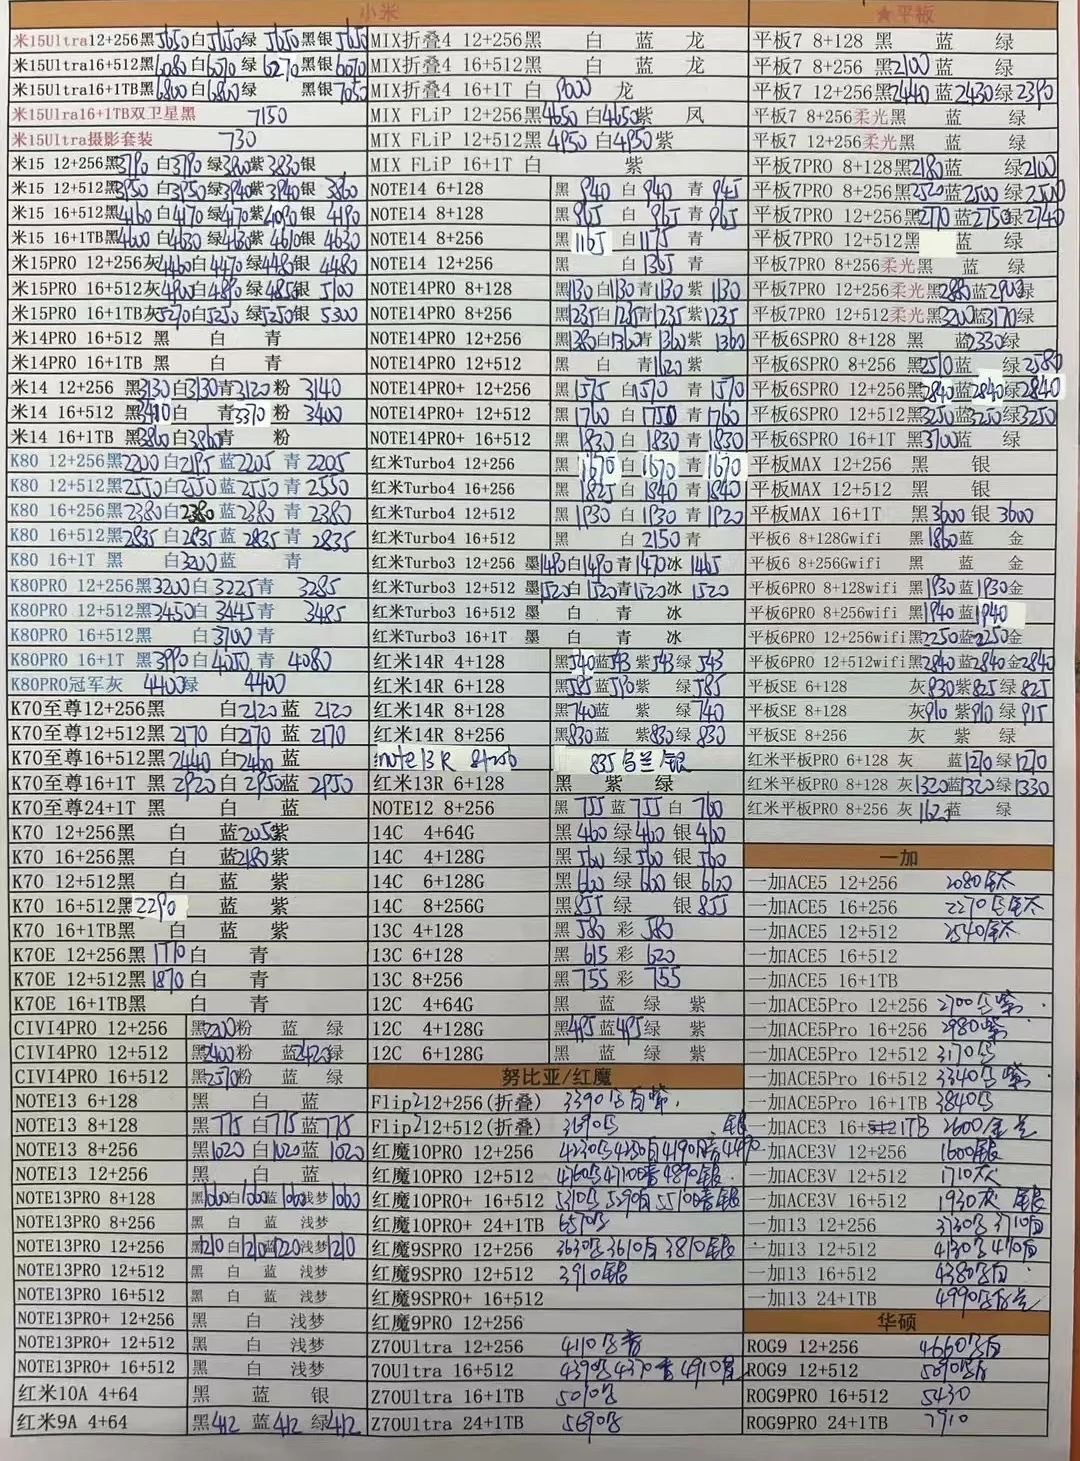 小米
米15Ultra12+256黑5650白5650绿 5650黑银5650
米15Ultra16+512黑6080白6070绿 6270黑银6070
米15Ultra16+1TB黑6800白6800绿 黑银7050
米15Ulra16+1TB双卫星黑 7150
米15Ultra摄影套装 730
米15 12+256黑3790 白3790 绿3800紫3830银
米15 12+512黑3950 白3950绿3940紫3940银 3860
米15 16+512黑4160 白4170 绿4170紫4090银 4190
米15 16+1TB黑4600 白4630 绿4630紫 4610银 4630
米15PRO 12+256灰4460白4470绿4480银 4480
米15PRO 16+512灰4900白4890 绿4850银 5100
米15PRO 16+1TB灰5270白5250 绿5250银 5300
米14PRO 16+512 黑 白 青
米14PRO 16+1TB 黑 白 青
米14 12+256 黑3130白3130青3120 粉 3140
米14 16+512 黑3410白 青3370 粉 3400
米14 16+1TB 黑3860白3860青 粉
K80 12+256黑2200 白2195 蓝2205 青 2205
K80 12+512黑2550白2550 蓝2550 青 2550
K80 16+256黑2380白2380 蓝2380 青 2380
K80 16+512黑2835白2835 蓝2835 青 2835
K80 16+1T 黑 白3200蓝 青
K80PRO 12+256黑3200白3225青 3285
K80PRO 12+512黑3450白3445青 3485
K80PRO 16+512黑 白3700青
K80PRO 16+1T 黑3990白4050青 4080
K80PRO冠军灰 4400绿 4400
K70至尊12+256黑 白2120蓝 2120
K70至尊12+512黑2170白2170 蓝 2170
K70至尊16+512黑2440白2460蓝
K70至尊16+1T 黑2920白2950蓝 2950
K70至尊24+1T 黑 白 蓝
K70 12+256黑 白 蓝2050紫
K70 16+256黑 白 蓝2180紫
K70 12+512黑 白 蓝 紫
K70 16+512黑2290 蓝 紫
K70 16+1TB黑 白 蓝 紫
K70E 12+256黑1710白 青
K70E 12+512黑1870白 青
K70E 16+1TB黑 白 青
CIVI4PRO 12+256 黑2200粉 蓝 绿
CIVI4PRO 12+512 黑2400粉 蓝2420绿
CIVI4PRO 16+512 黑2570粉 蓝 绿
NOTE13 6+128 黑 白 蓝
NOTE13 8+128 黑775 白775蓝775
NOTE13 8+256 黑1020 白1020蓝1020
NOTE13 12+256 黑 白 蓝
NOTE13PRO 8+128 黑1060白1060蓝1060浅梦1060
NOTE13PRO 8+256 黑 白 蓝 浅梦
NOTE13PRO 12+256 黑1210白1210蓝1220浅梦1210
NOTE13PRO 12+512 黑 白 蓝 浅梦
NOTE13PRO 16+512 黑 白 蓝 浅梦
NOTE13PRO+ 12+256 黑 白 浅梦
NOTE13PRO+ 12+512 黑 白 浅梦
NOTE13PRO+ 16+512 黑 白 浅梦
红米10A 4+64 黑 蓝 银
红米9A 4+64 黑412 蓝412 绿412
MIX折叠4 12+256黑 白 蓝 龙
MIX折叠4 16+512黑 白 蓝 龙
MIX折叠4 16+1T 白 9000 龙
MIX FLiP 12+256黑4650 白4650紫 凤
MIX FLiP 12+512黑4950 白4950紫
MIX FLiP 16+1T 白 紫
NOTE14 6+128 黑940 白940 青945
NOTE14 8+128 黑965 白965 青965
NOTE14 8+256 黑1165 白1175 青
NOTE14 12+256 黑 白1365 青
NOTE14PRO 8+128 黑1130白1130青1130紫1130
NOTE14PRO 8+256 黑1235白1235青1235紫1235
NOTE14PRO 12+256 黑1380白1360青1360紫 1360
NOTE14PRO 12+512 黑 白 青1620紫
NOTE14PRO+ 12+256 黑1575 白1570 青1570
NOTE14PRO+ 12+512 黑1760 白1750 青1760
NOTE14PRO+ 16+512 黑1830 白1830 青1830
红米Turbo4 12+256 黑1670白1670青1670
红米Turbo4 16+256 黑1825白1840青1840
红米Turbo4 12+512 黑1930 白1930 青1920
红米Turbo4 16+512 黑 白2150 青
红米Turbo3 12+256 墨1490白1490青1470冰1465
红米Turbo3 12+512 墨1520白1520青1520冰1520
红米Turbo3 16+512 墨 白 青 冰
红米Turbo3 16+1T 墨 白 青 冰
红米14R 4+128 黑540蓝543 紫543绿543
红米14R 6+128 黑585蓝590紫 绿585
红米14R 8+128 黑740蓝 紫 绿740
红米14R 8+256 黑830蓝 紫830绿 830
note13R 8+256 835 乌兰 银
红米13R 6+128 黑 紫 绿
NOTE12 8+256 黑755 蓝755 白760
14C 4+64G 黑460 绿460 银460
14C 4+128G 黑560 绿560 银560
14C 6+128G 黑620 绿620 银620
14C 8+256G 黑855 绿 银855
13C 4+128 黑580 彩580
13C 6+128 黑 615 彩 620
13C 8+256 黑755 彩755
12C 4+64G 黑 蓝 绿 紫
12C 4+128G 黑495蓝495绿 紫
12C 6+128G 黑 蓝 绿 紫
努比亚/红魔
Flip2 12+256(折叠) 3390乌白紫
Flip2 12+512(折叠) 3690乌
红魔10PRO 12+256 4230乌4230白4190暗4490银
红魔10PRO 12+512 4760乌4710暗4890银
红魔10PRO+ 16+512 5310乌5590白5510暗银
红魔10PRO+ 24+1TB 6570乌
红魔9SPRO 12+256 3630乌3610白3810银
红魔9SPRO 12+512 3910银
红魔9SPRO+ 16+512
红魔9PRO 12+256
Z70Ultra 12+256 4110乌青
70Ultra 16+512 4390乌4370青4910
Z70Ultra 16+1TB 5010乌
Z70Ultra 24+1TB 5690乌
★平板
平板7 8+128 黑 蓝 绿
平板7 8+256 黑2100蓝 绿
平板7 12+256黑2440蓝2430绿2390
平板7 8+256柔光黑 蓝 绿
平板7 12+256柔光黑 蓝 绿
平板7PRO 8+128黑2180蓝 绿2100
平板7PRO 8+256黑2520蓝2500 绿2500
平板7PRO 12+256黑2770蓝2750绿2740
平板7PRO 12+512黑 蓝 绿
平板7PRO 8+256柔光黑 蓝 绿
平板7PRO 12+256柔光黑2880蓝2900绿
平板7PRO 12+512柔光黑3200蓝3170绿
平板6SPRO 8+128 黑 蓝2330绿
平板6SPRO 8+256 黑2510蓝 绿2580
平板6SPRO 12+256黑2840蓝2840绿2840
平板6SPRO 12+512黑3250蓝3250绿3250
平板6SPRO 16+1T 黑3700蓝 绿
平板MAX 12+256 黑 银
平板MAX 12+512 黑 银
平板MAX 16+1T 黑3600 银3600
平板6 8+128Gwifi 黑1860蓝 金
平板6 8+256Gwifi 黑 蓝 金
平板6PRO 8+128wifi 黑1930蓝1930金
平板6PRO 8+256wifi 黑1940蓝1940
平板6PRO 12+256wifi黑2250蓝2250金
平板6PRO 12+512wifi黑2840蓝2840金2840
平板SE 6+128 灰830紫825绿825
平板SE 8+128 灰910 紫910绿915
平板SE 8+256 灰 紫 绿
红米平板PRO 6+128 灰 蓝1270绿1270
红米平板PRO 8+128 灰1320蓝1320绿1330
红米平板PRO 8+256 灰1620蓝 绿
一加
一加ACE5 12+256 2080钛
一加ACE5 16+256 2270乌钛
一加ACE5 12+512 2540钛
一加ACE5 16+512
一加ACE5 16+1TB
一加ACE5Pro 12+256 2700乌紫
一加ACE5Pro 16+256 2980紫
一加ACE5Pro 12+512 3170乌
一加ACE5Pro 16+512 3340乌紫
一加ACE5Pro 16+1TB 3840乌
一加ACE3 16+1TB 2600金兰
一加ACE3V 12+256 1600银
一加ACE3V 12+512 1710灰
一加ACE3V 16+512 1930灰 银
一加13 12+256 3730乌3710白
一加13 12+512 4130乌4110白
一加13 16+512 4380乌白
一加13 24+1TB 4990乌白兰
华硕
ROG9 12+256 4660乌白
ROG9 12+512 5090乌白
ROG9PRO 16+512 5430
ROG9PRO 24+1TB 7910